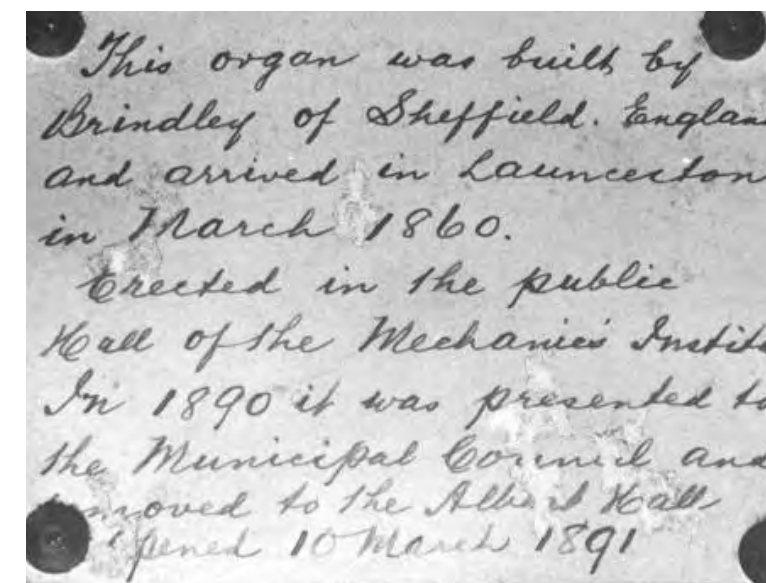 This organ was built by
Brindley of Sheffield. Englan
and arrived in Launceston
in March 1860.
Erected in the public
Hall of the Mechanics Institu
In 1890 it was presented to
the Municipal Council and
moved to the Albert Hall
pened 10 March 1891